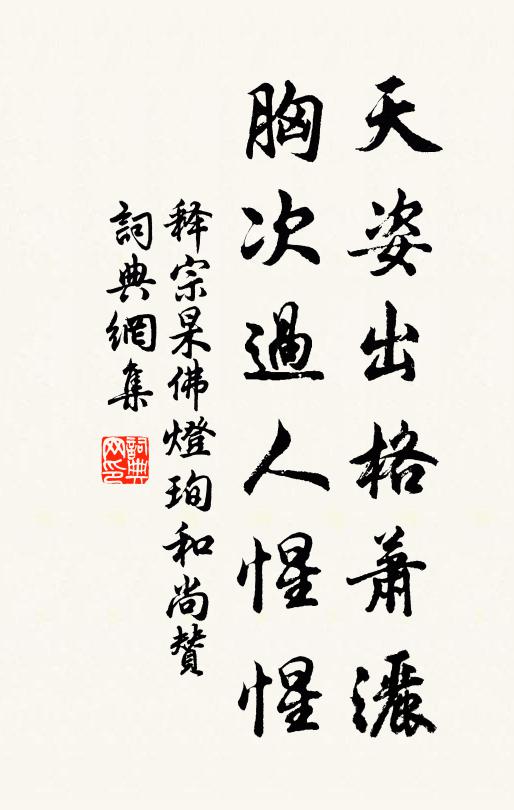 天姿出格蕭灑
胸次過人惺惺
释宗杲佛燈珣和尚贊
詞典網集
詞典網印